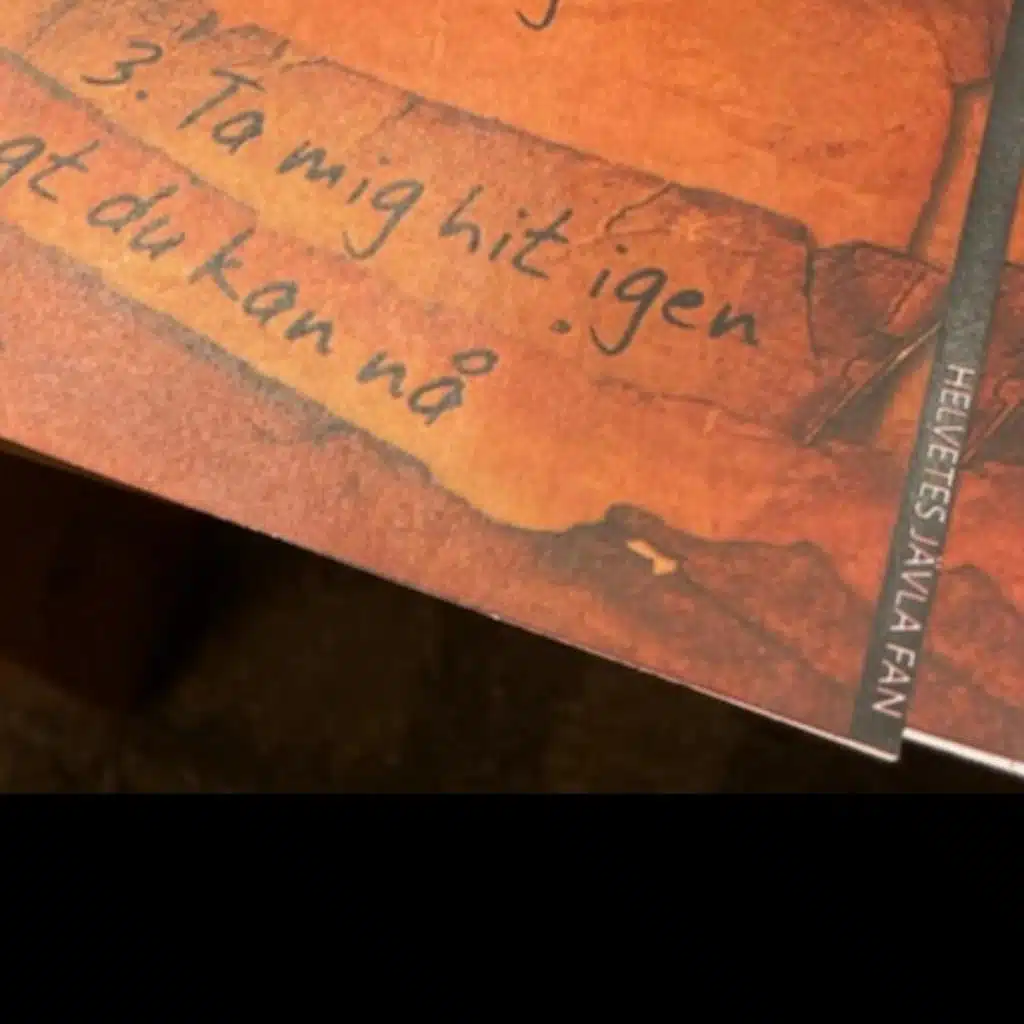 3. Ta mig hit igen.
du kan nå
HELVETES JÄVLA FAN